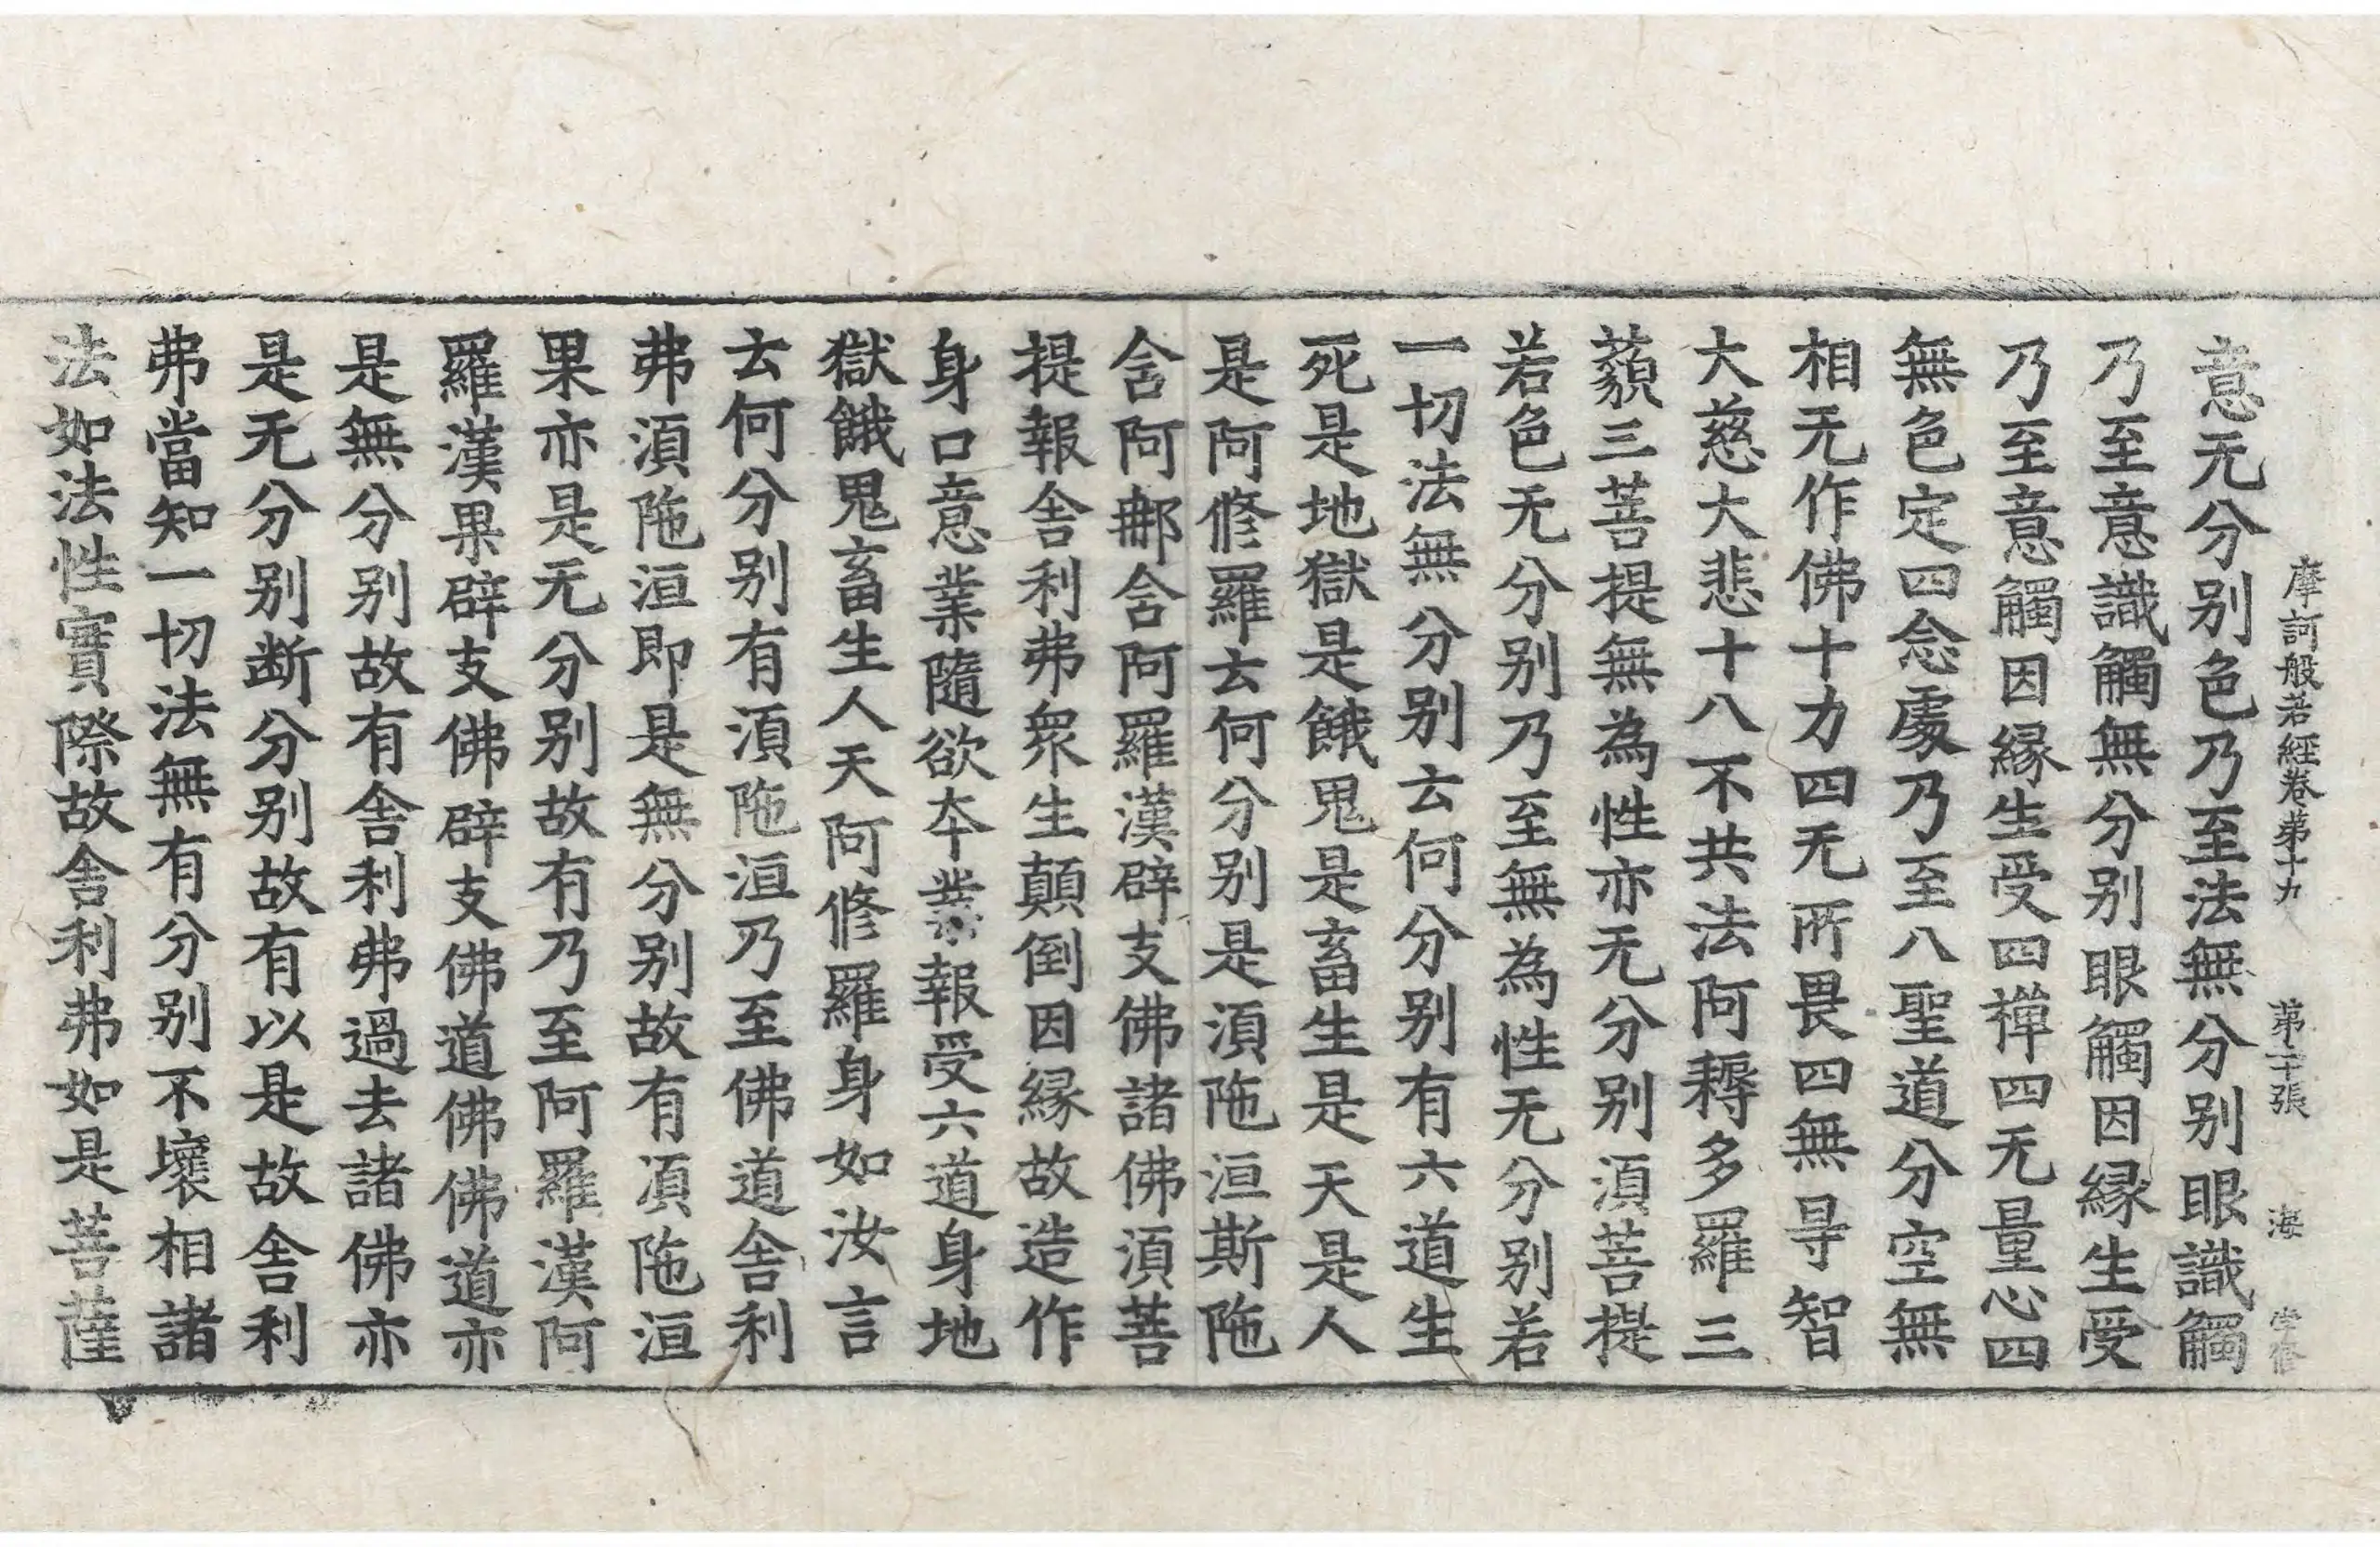 摩訶般若經卷第十九 第二十張 海
意无分别色乃至法無分别眼識觸
乃至意識觸無分别眼觸因縁生受
乃至意觸因縁生受四禪四无量心四
無色定四念處乃至八聖道分空無
相无作佛十力四无所畏四無㝵智
大慈大悲十八不共法阿耨多羅三
藐三菩提無為性亦无分别湏菩提
若色无分别乃至無為性无分别若
一切法無分别云何分别有六道生
死是地獄是餓鬼是畜生是天是人
是阿修羅云何分别是湏陁洹斯陁
含阿那含阿羅漢辟支佛諸佛湏菩
提報舎利弗衆生顛倒因縁故造作
身口意業隨欲夲業報受六道身地
獄餓鬼畜生人天阿修羅身如汝言
云何分别有湏陁洹乃至佛道舎利
弗湏陁洹即是無分别故有湏陁洹
果亦是无分别故有乃至阿羅漢阿
羅漢果辟支佛辟支佛道佛佛道亦
是無分别故有舎利弗過去諸佛亦
是无分别断分别故有以是故舎利
弗當知一切法無有分别不壞相諸
法如法性實際故舎利弗如是菩薩